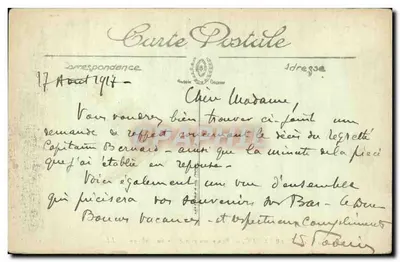 Carte Postale
Correspondance
Adresse
17 Aout 1917-
Chère Madame,
Vous voudrez bien trouver ci-joint une
demande de sur le décès du regretté
Capitaine Bernard - ainsi que la minute de la pièce
que j'ai établie en réponse.
Voici également une vue d'ensemble
qui précisera vos souvenirs sur Bar-le-Duc
Bonnes vacances - et respectueux compliments